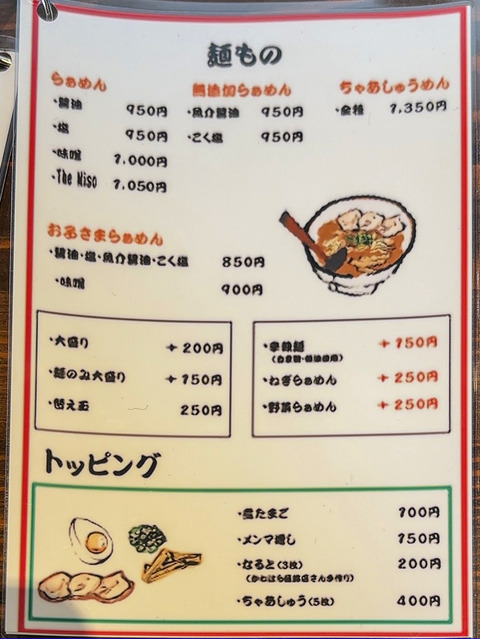 麺もの
らぁめん
・醤油 950円
・塩 950円
・味噌 1,000円
・The Miso 1,050円
無添加らぁめん
・魚介醤油 950円
・こく塩 950円
ちゃあしゅうめん
・全種 1,350円
お子さまらぁめん
・醤油・塩・魚介醤油・こく塩 850円
・味噌 900円
・大盛り +200円
・麺のみ大盛り +150円
・替え玉 250円
・辛味麺 +150円
・ねぎらぁめん +250円
・野菜らぁめん +250円
トッピング
・煮たまご 100円
・メンマ増し 150円
・なると(3枚) 200円
・ちゃあしゅう(5枚) 400円